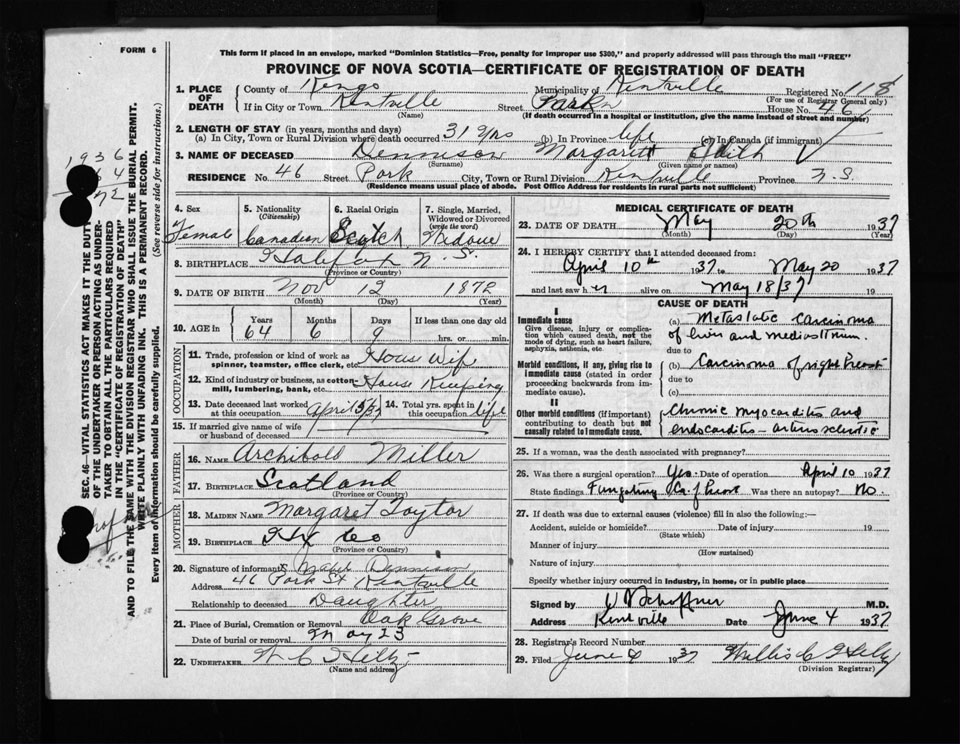 FORM 6
This form if placed in an envelope, marked "Dominion Statistics—Free, penalty for improper use $300," and properly addressed will pass through the mail "FREE"
PROVINCE OF NOVA SCOTIA—CERTIFICATE OF REGISTRATION OF DEATH
1. PLACE OF DEATH County of Kings Municipality of Kentville Registered No. 118
(For use of Registrar General only)
If in City or Town Kentville Street Park House No. 46
(Name) (If death occurred in a hospital or institution, give the name instead of street and number)
2. LENGTH OF STAY (in years, months and days)
(a) In City, Town or Rural Division where death occurred 31 yrs (b) In Province life (c) In Canada (if immigrant)
3. NAME OF DECEASED Dennison Margarett
(Surname) (Given name or names)
RESIDENCE No. 46 Street Park City, Town or Rural Division Kentville Province N.S.
(Residence means usual place of abode. Post Office Address for residents in rural parts not sufficient)
4. Sex Female
5. Nationality (Citizenship) Canadian
6. Racial Origin Scotch
7. Single, Married, Widowed or Divorced (write the word) Widow
8. BIRTHPLACE Halifax N.S.
(Province or Country)
9. DATE OF BIRTH Nov 12 1872
(Month) (Day) (Year)
10. AGE in Years Months Days If less than one day old
64 6 9 hrs. or min.
OCCUPATION
11. Trade, profession or kind of work as spinner, teamster, office clerk, etc. House Wife
12. Kind of industry or business, as cotton mill, lumbering, bank, etc. House Keeping
13. Date deceased last worked at this occupation April 14. Total yrs. spent in this occupation life
15. If married give name of wife or husband of deceased
FATHER
16. NAME Archibold Miller
17. BIRTHPLACE Scotland
(Province or Country)
MOTHER
18. MAIDEN NAME Margaret Taylor
19. BIRTHPLACE Hfx Co
(Province or Country)
20. Signature of informant Mabel Dennison
Address 46 Park St Kentville
Relationship to deceased Daughter
21. Place of Burial, Cremation or Removal Oak Grove
Date of burial or removal May 23
22. UNDERTAKER W C Hiltz
(Name and address)
MEDICAL CERTIFICATE OF DEATH
23. DATE OF DEATH May 20th 1937
(Month) (Day) (Year)
24. I HEREBY CERTIFY that I attended deceased from:
April 10th 1937 to May 20 1937
and last saw her alive on May 18/37 19
CAUSE OF DEATH
I
Immediate cause
Give disease, injury or complication which caused death, not the mode of dying, such as heart failure, asphyxia, asthenia, etc.
(a) Metastatic Carcinoma
of liver and mediastinum.
due to
Morbid conditions, if any, giving rise to immediate cause (stated in order proceeding backwards from immediate cause).
(b) Carcinoma of right Breast
due to
(c)
II
Other morbid conditions (if important) contributing to death but not causally related to immediate cause.
Chronic myocarditis and
endocarditis – arterio sclerotic
25. If a woman, was the death associated with pregnancy?
26. Was there a surgical operation? Yes Date of operation April 10 1937
State findings Fungating Ca of Breast Was there an autopsy? No.
27. If death was due to external causes (violence) fill in also the following:—
Accident, suicide or homicide? Date of injury 19
(State which)
Manner of injury
(How sustained)
Nature of injury
Specify whether injury occurred in industry, in home, or in public place
Signed by M.D.
Address Kentville Date June 4 1937
28. Registrar's Record Number
29. Filed June 4 1937 Willis C Hiltz
(Division Registrar)
SEC. 46—VITAL STATISTICS ACT MAKES IT THE DUTY OF THE UNDERTAKER OR PERSON ACTING AS UNDERTAKER TO OBTAIN ALL THE PARTICULARS REQUIRED IN THE "CERTIFICATE OF REGISTRATION OF DEATH" AND TO FILE THE SAME WITH THE DIVISION REGISTRAR WHO SHALL ISSUE THE BURIAL PERMIT.
WRITE PLAINLY WITH UNFADING INK. THIS IS A PERMANENT RECORD.
Every item of information should be carefully supplied. (See reverse side for instructions.)
1936
64